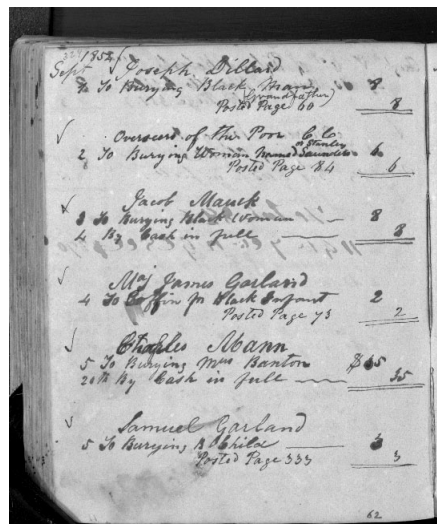 1852
Sept Joseph Dillard
2 To Burying Black Man 8
(Grandfather)
Posted Page 60 8
Overseers of the Poor C Co
or Stanley
2 To Burying Woman Named Saunders 6
Posted Page 84 6
Jacob Mauck
3 To Burying Black Woman 8
4 By Cash in full 8
Maj James Garland
4 To Coffin for Black Infant 2
Posted Page 73 2
Charles Mann
5 To Burying Mrs Banton $35
20th By Cash in full 35
Samuel Garland
5 To Burying B Child 3
Posted Page 333 3
62